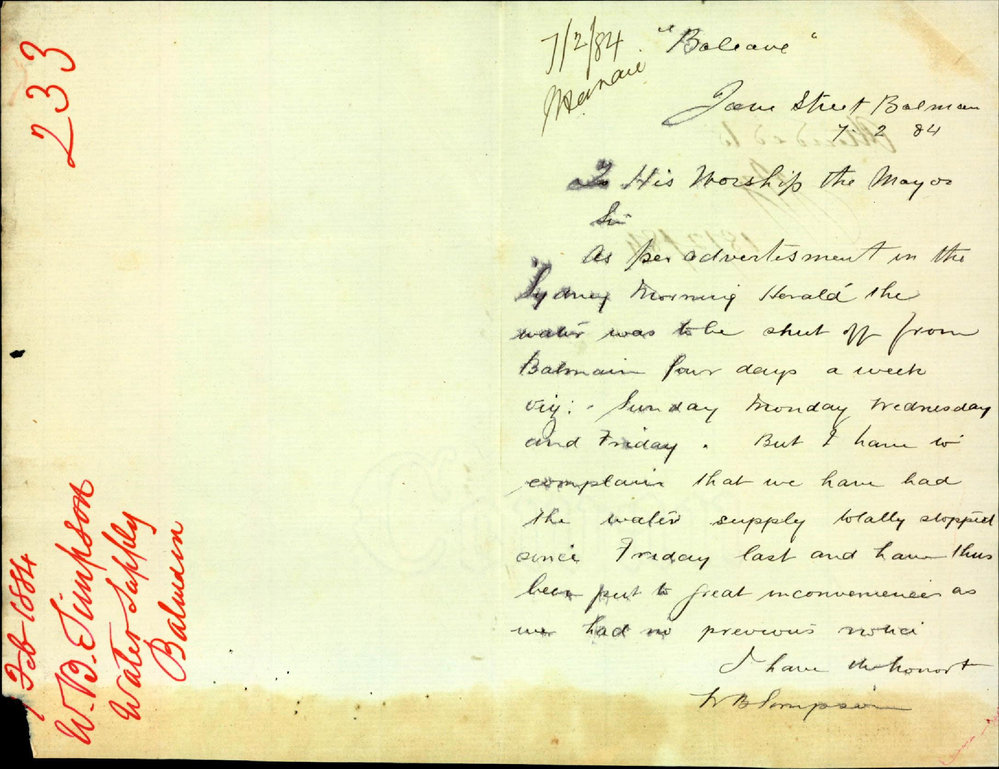 233
7 Feb 1884
W. B. Simpson
Water Supply
Balmain
7/2/84
"Baleave"
Jane Street Balmain
7. 2 84
To His Worship the Mayor
Sir
As per advertisment in the
Sydney Morning Herald the
water was to be shut off from
Balmain four days a week
viz: - Sunday Monday Wednesday
and Friday. But I have to
complain that we have had
the water supply totally stopped
since Friday last and have thus
been put to great inconveniences as
we had no previous notice
I have the honor
W B Simpson